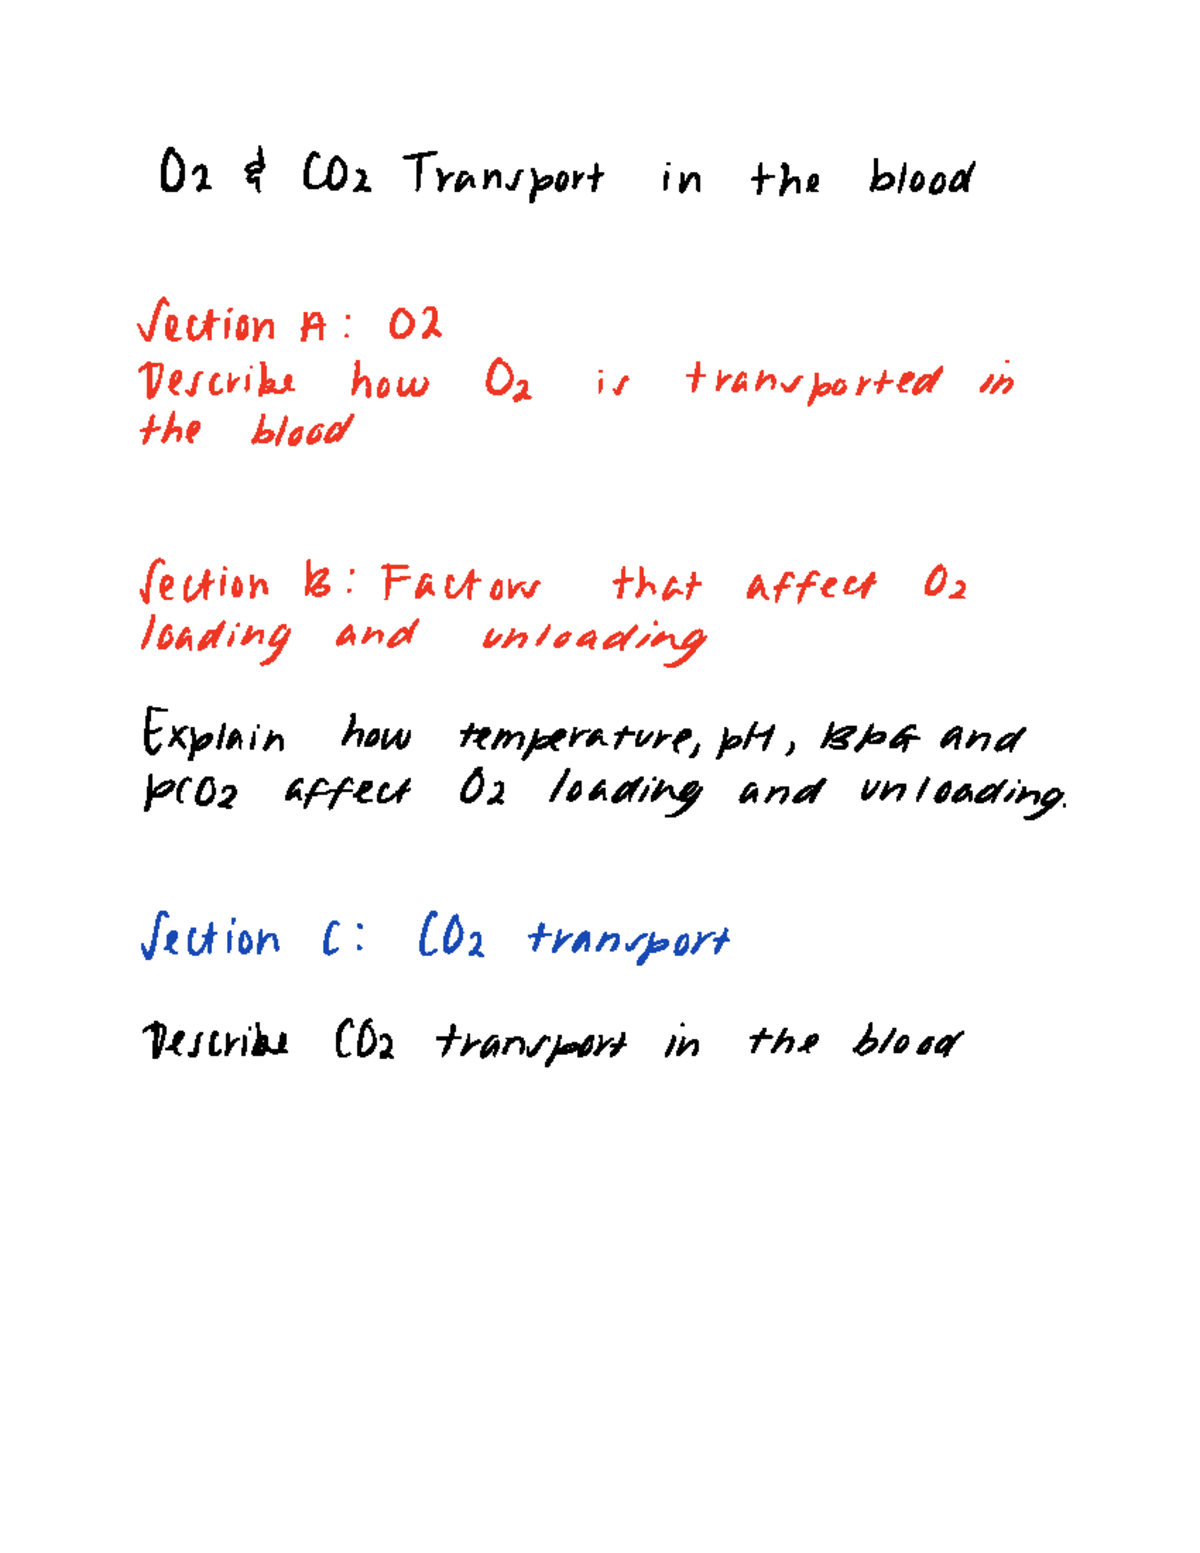 O2 & CO2 Transport in the blood
Section A: O2
Describe how O2 is transported in
the blood
Section B: Factors that affect O2
loading and unloading
Explain how temperature, pH, BPG and
pCO2 affect O2 loading and unloading.
Section C: CO2 transport
Describe CO2 transport in the blood